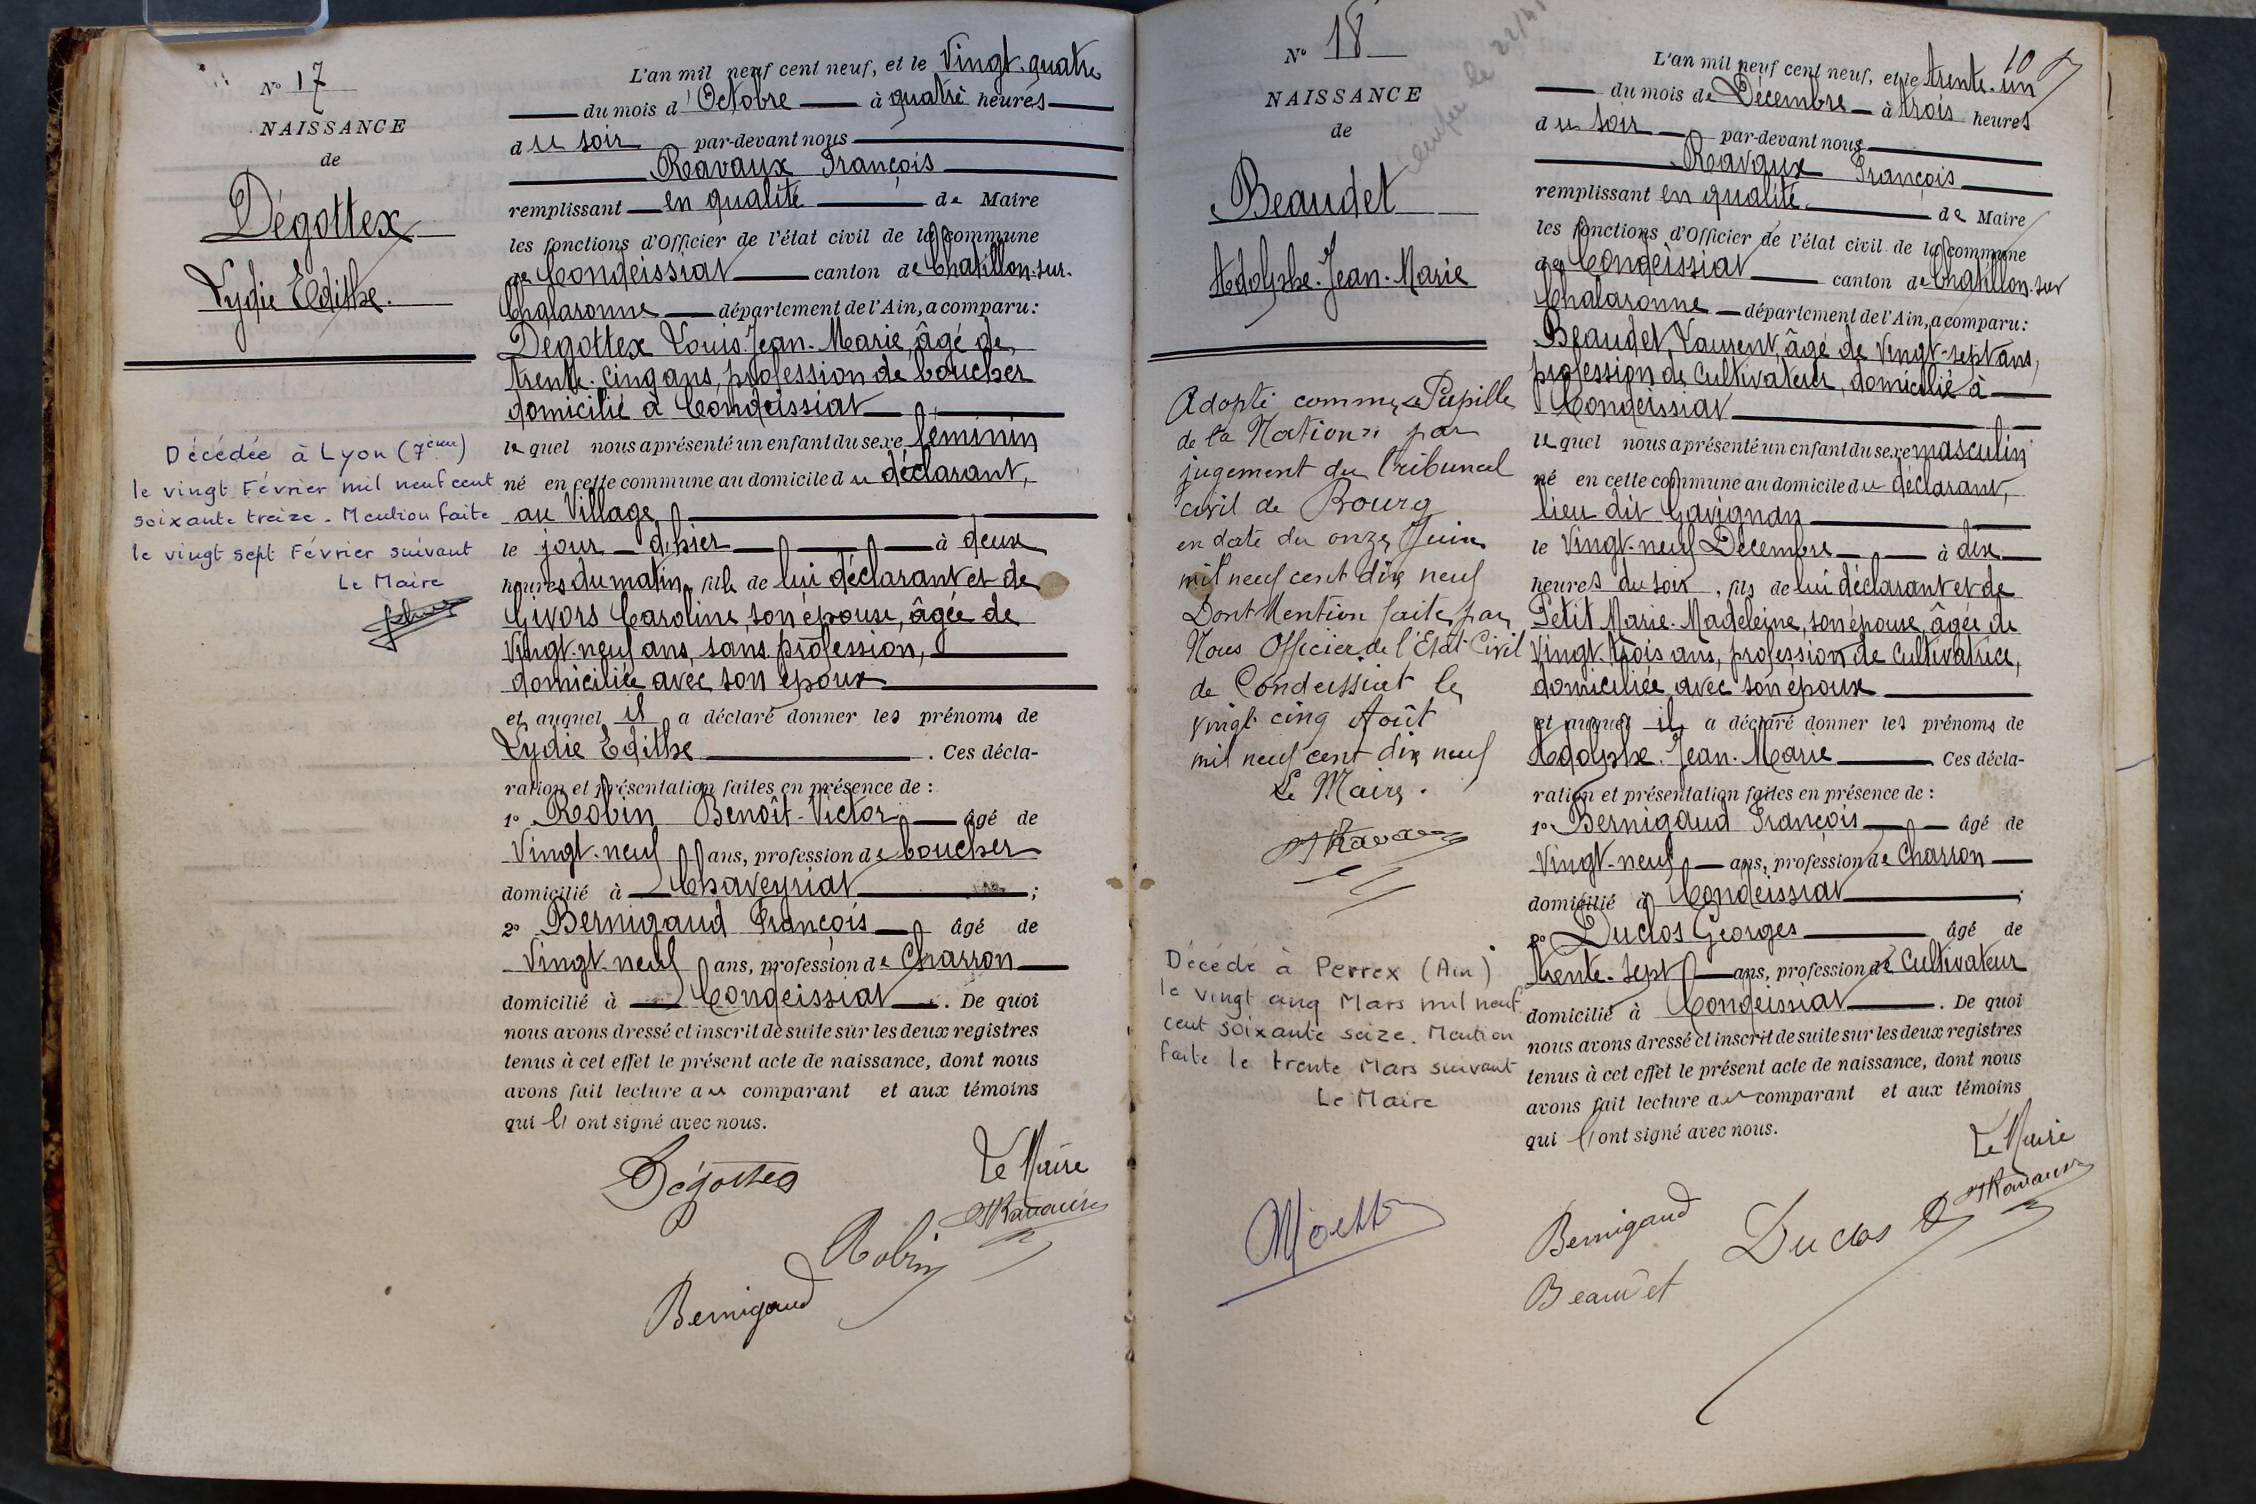 N° 17
NAISSANCE
de
Dégottex
Lydie Edithe.
Décédée à Lyon (7ème)
le vingt Février mil neuf cent
soixante treize. Mention faite
le vingt sept Février suivant
Le Maire
L'an mil neuf cent neuf, et le Vingt-quatre
du mois d'Octobre à quatre heures
du soir par-devant nous
Ravaux François
remplissant en qualité de Maire
les fonctions d'Officier de l'état civil de la commune
de Condeissiat canton de Chatillon-sur-
Chalaronne département de l'Ain, a comparu:
Dégottex Louis Jean-Marie, âgé de
trente-cinq ans, profession de boucher
domicilié à Condeissiat
lequel nous a présenté un enfant du sexe féminin
né en cette commune au domicile du déclarant,
au Village
le jour d'hier à deux
heures du matin, fille de lui déclarant et de
Givors Caroline, son épouse, âgée de
Vingt-neuf ans, sans profession,
domiciliée avec son époux
et auquel il a déclaré donner les prénoms de
Lydie Edithe. Ces décla-
ration et présentation faites en présence de:
1° Robin Benoît-Victor âgé de
Vingt-neuf ans, profession de boucher
domicilié à Chaveyriat;
2° Bernigaud François âgé de
Vingt-neuf ans, profession de Charron
domicilié à Condeissiat. De quoi
nous avons dressé et inscrit de suite sur les deux registres
tenus à cet effet le présent acte de naissance, dont nous
avons fait lecture au comparant et aux témoins
qui l'ont signé avec nous.
Dégottex
Le Maire
F Ravaux
Robin
Bernigaud
10
N° 18
NAISSANCE
de
Beaudet
Adolphe-Jean-Marie
Adopté comme "Pupille
de la Nation" par
jugement du Tribunal
civil de Bourg
en date du onze Juin
mil neuf cent dix neuf
Dont Mention faite par
Nous Officier de l'Etat-Civil
de Condeissiat le
vingt cinq Août
mil neuf cent dix neuf
Le Maire.
F Ravaux
Décédé à Perrex (Ain)
le vingt cinq Mars mil neuf
cent soixante seize. Mention
faite le trente Mars suivant
Le Maire
L'an mil neuf cent neuf, et le trente-un
du mois de Décembre à trois heures
du soir par-devant nous
Ravaux François
remplissant en qualité de Maire
les fonctions d'Officier de l'état civil de la commune
de Condeissiat canton de Chatillon-sur
Chalaronne département de l'Ain, a comparu:
Beaudet Laurent, âgé de Vingt-sept ans,
profession de Cultivateur, domicilié à
Condeissiat
lequel nous a présenté un enfant du sexe masculin
né en cette commune au domicile du déclarant,
lieu dit Gavignan
le Vingt-neuf Décembre à dix
heures du soir, fils de lui déclarant et de
Petit Marie-Madeleine, son épouse, âgée de
Vingt-trois ans, profession de Cultivatrice,
domiciliée avec son époux
et auquel il a déclaré donner les prénoms de
Adolphe-Jean-Marie Ces décla-
ration et présentation faites en présence de:
1° Bernigaud François âgé de
Vingt-neuf ans, profession de Charron
domicilié à Condeissiat;
2° Duclos Georges âgé de
trente-sept ans, profession de Cultivateur
domicilié à Condeissiat. De quoi
nous avons dressé et inscrit de suite sur les deux registres
tenus à cet effet le présent acte de naissance, dont nous
avons fait lecture au comparant et aux témoins
qui l'ont signé avec nous.
Le Maire
F Ravaux
Bernigaud
Duclos G
Beaudet